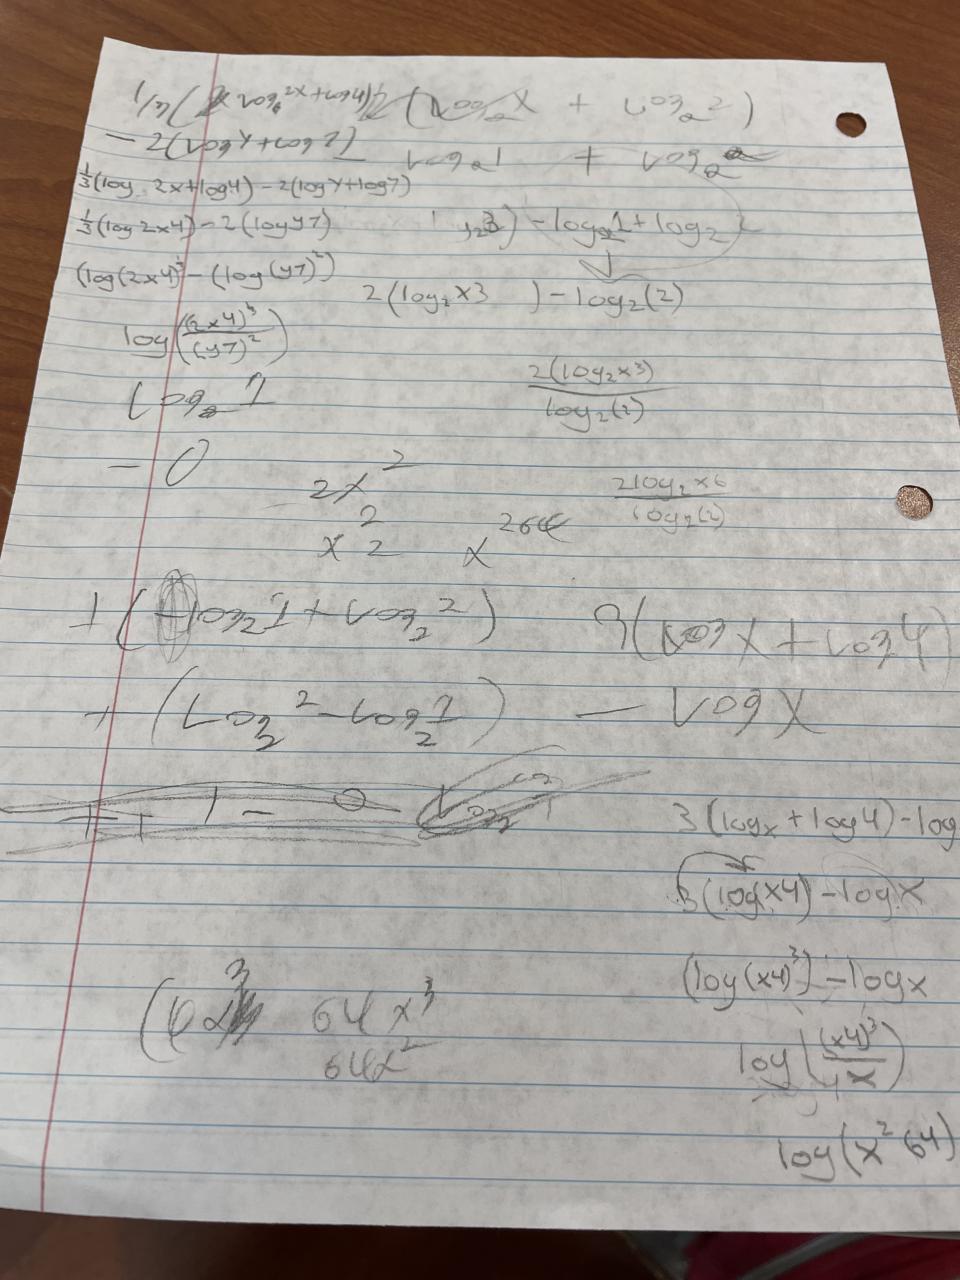 1/3( log 2x + log 4) 2(log₂ x + log₂ 2)
- 2(log y + log 7) - log₂ 1 + log₂
1/3(log 2x + log4) - 2(log y + log7)
1/3(log 2x4) - 2(log y7) - log₂1 + log₂
(log(2x4)³ - (log(y7)²)
2(log₂ x3 ) - log₂(2)
log((2x4)³/(y7)²)
log₂ 1
2(log₂x3)/log₂(2)
- 0
2x²
2log₂x6/log₂(2)
x 2 2
x²⁶⁴
+ ( log₂1 + log₂ 2) 3(log x + log 4)
+ (log₂ 2 - log₂ 1) - log x
3(logx + log4) - log
3(log x4) - log x
(log(x4)³) - log x
(4x 3 64x³
64x²
log((x4)³/x)
log(x² 64)